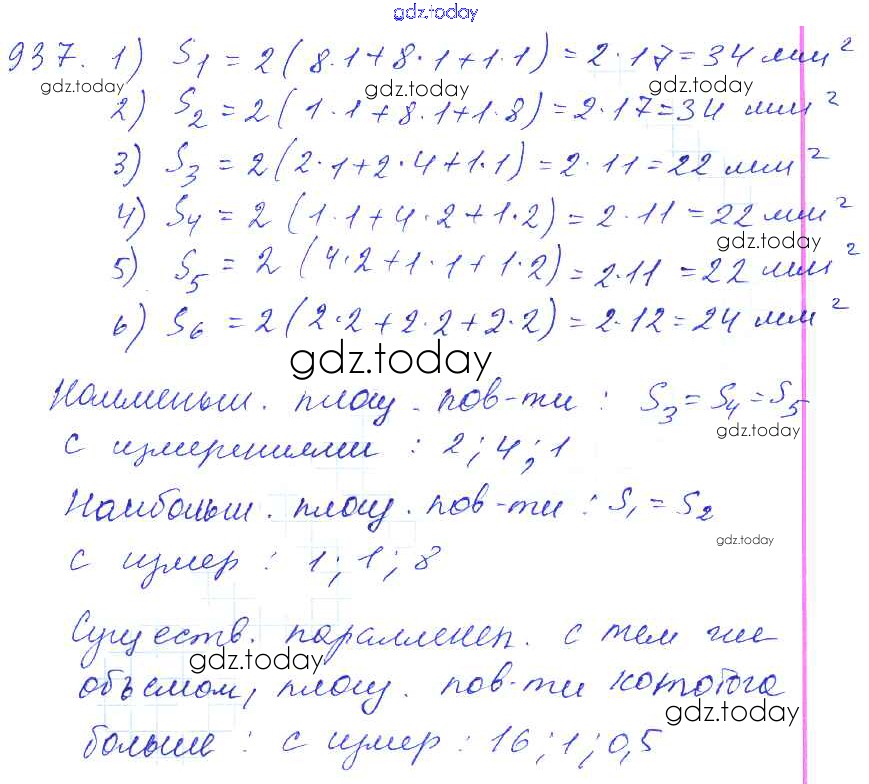 gdz.today
937. 1) S₁ = 2(8·1+8·1+1·1) = 2·17=34 мм²
gdz.today gdz.today gdz.today
2) S₂ = 2(1·1+8·1+1·8) = 2·17=34 мм²
3) S₃ = 2(2·1+2·4+1·1) = 2·11=22 мм²
4) S₄ = 2(1·1+4·2+1·2) = 2·11=22 мм²
gdz.today
5) S₅ = 2(4·2+1·1+1·2) = 2·11=22 мм²
6) S₆ = 2(2·2+2·2+2·2) = 2·12=24 мм²
gdz.today
Наименьш. площ. пов-ти : S₃ = S₄ = S₅
gdz.today
с измерениями : 2;4;1
Наибольш. площ. пов-ти : S₁ = S₂
gdz.today
с измер : 1;1;8
Существ. параллелеп. с тем же
gdz.today
объемом, площ. пов-ти которого
gdz.today
больше : с измер : 16;1;0,5